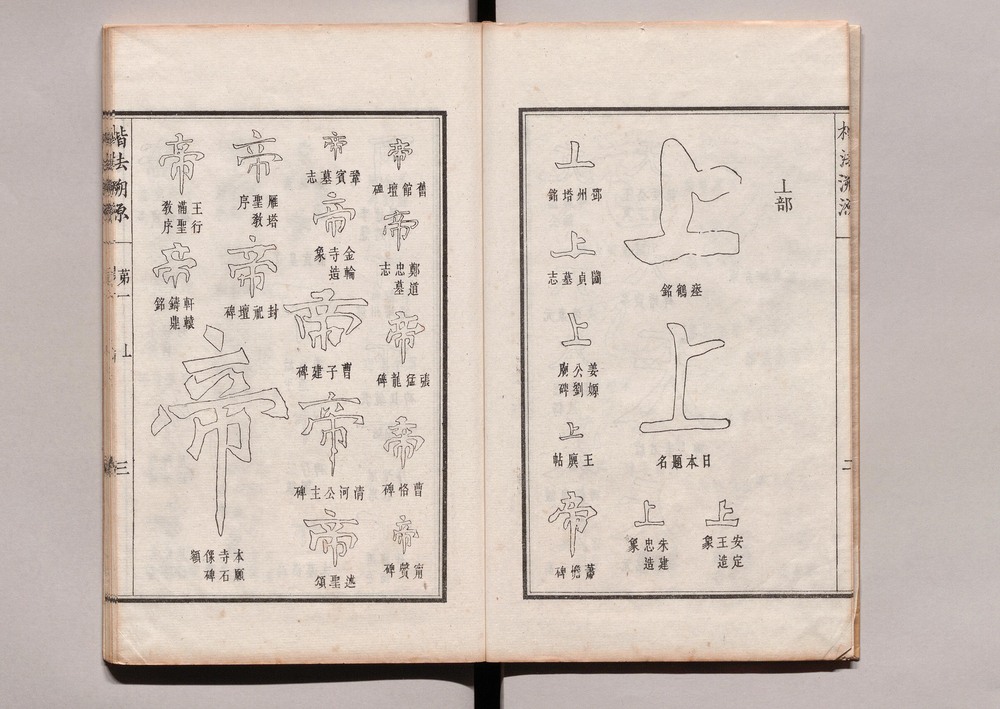 上部
上
瘞鶴銘
上
日本題名
上
安定王造象
上
朱建忠造象
上
鄧州塔銘
上
圓貞墓志
上
姜嫄公劉廟碑
上
王廙帖
帝
蕭憺碑
帝
舊館壇碑
帝
鄭道忠墓志
帝
張猛龍碑
帝
曹恪碑
帝
甯贙碑
帝
鞏賓墓志
帝
金輪寺造象
帝
曹子建碑
帝
清河公主碑
帝
述聖頌
帝
雁塔聖教序
帝
封祀壇碑
帝
王行滿聖教序
帝
軒轅鑄鼎銘
帝
本願寺石保碑額
楷法溯源
第一
上
三